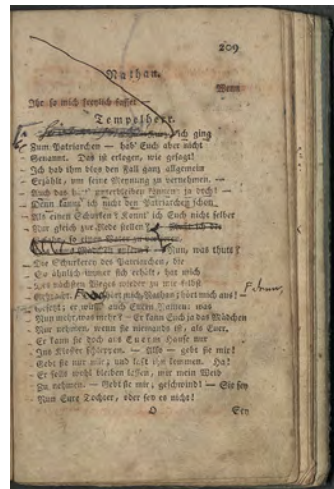 209
Nathan.
Wenn
Ihr so mich freylich fasset —
Tempelherr.
ich ging
Zum Patriarchen — hab' Euch aber nicht
Genannt. Das ist erlogen, wie gesagt!
Ich hab ihm blos den Fall ganz allgemein
Erzählt, um seine Meynung zu vernehmen. —
Auch das hätt' unterbleiben können: ja doch! —
Denn kannt' ich nicht den Patriarchen schon
Als einen Schurken? Kannt' ich Euch nicht selber
Nur gleich zur Rede stellen?
Nun, was thuts?
Die Schurkerey des Patriarchen, die
So ähnlich immer sich erhält, hat mich
Des nächsten Weges wieder zu mir selbst
Gebracht. hört mich, Nathan; hört mich aus! —
Gesetzt; er wüßt' auch Euern Namen: was
Nun mehr, was mehr? — Er kann Euch ja das Mädchen
Nur nehmen, wenn sie niemands ist, als Euer.
Er kann sie doch aus Euerm Hause nur
Ins Kloster schleppen. — Also — gebt sie mir!
Gebt sie nur mir; und laßt ihn kommen. Ha!
Er solls wohl bleiben lassen, mir mein Weib
Zu nehmen. — Gebt sie mir; geschwind! — Sie sey
Nun Eure Tochter, oder sey es nicht!
O
Sey